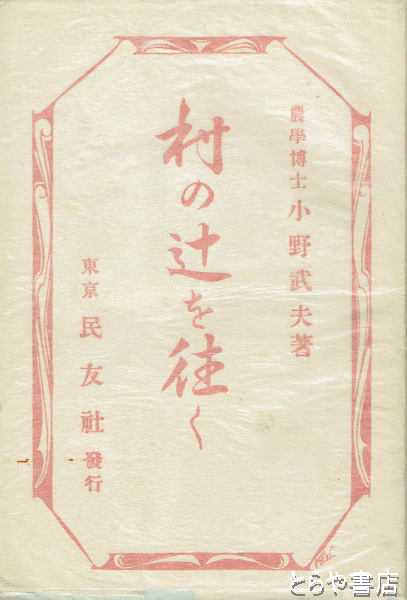 農學博士 小野武夫著
村の辻を往く
東京 民友社 發行
とらや書店